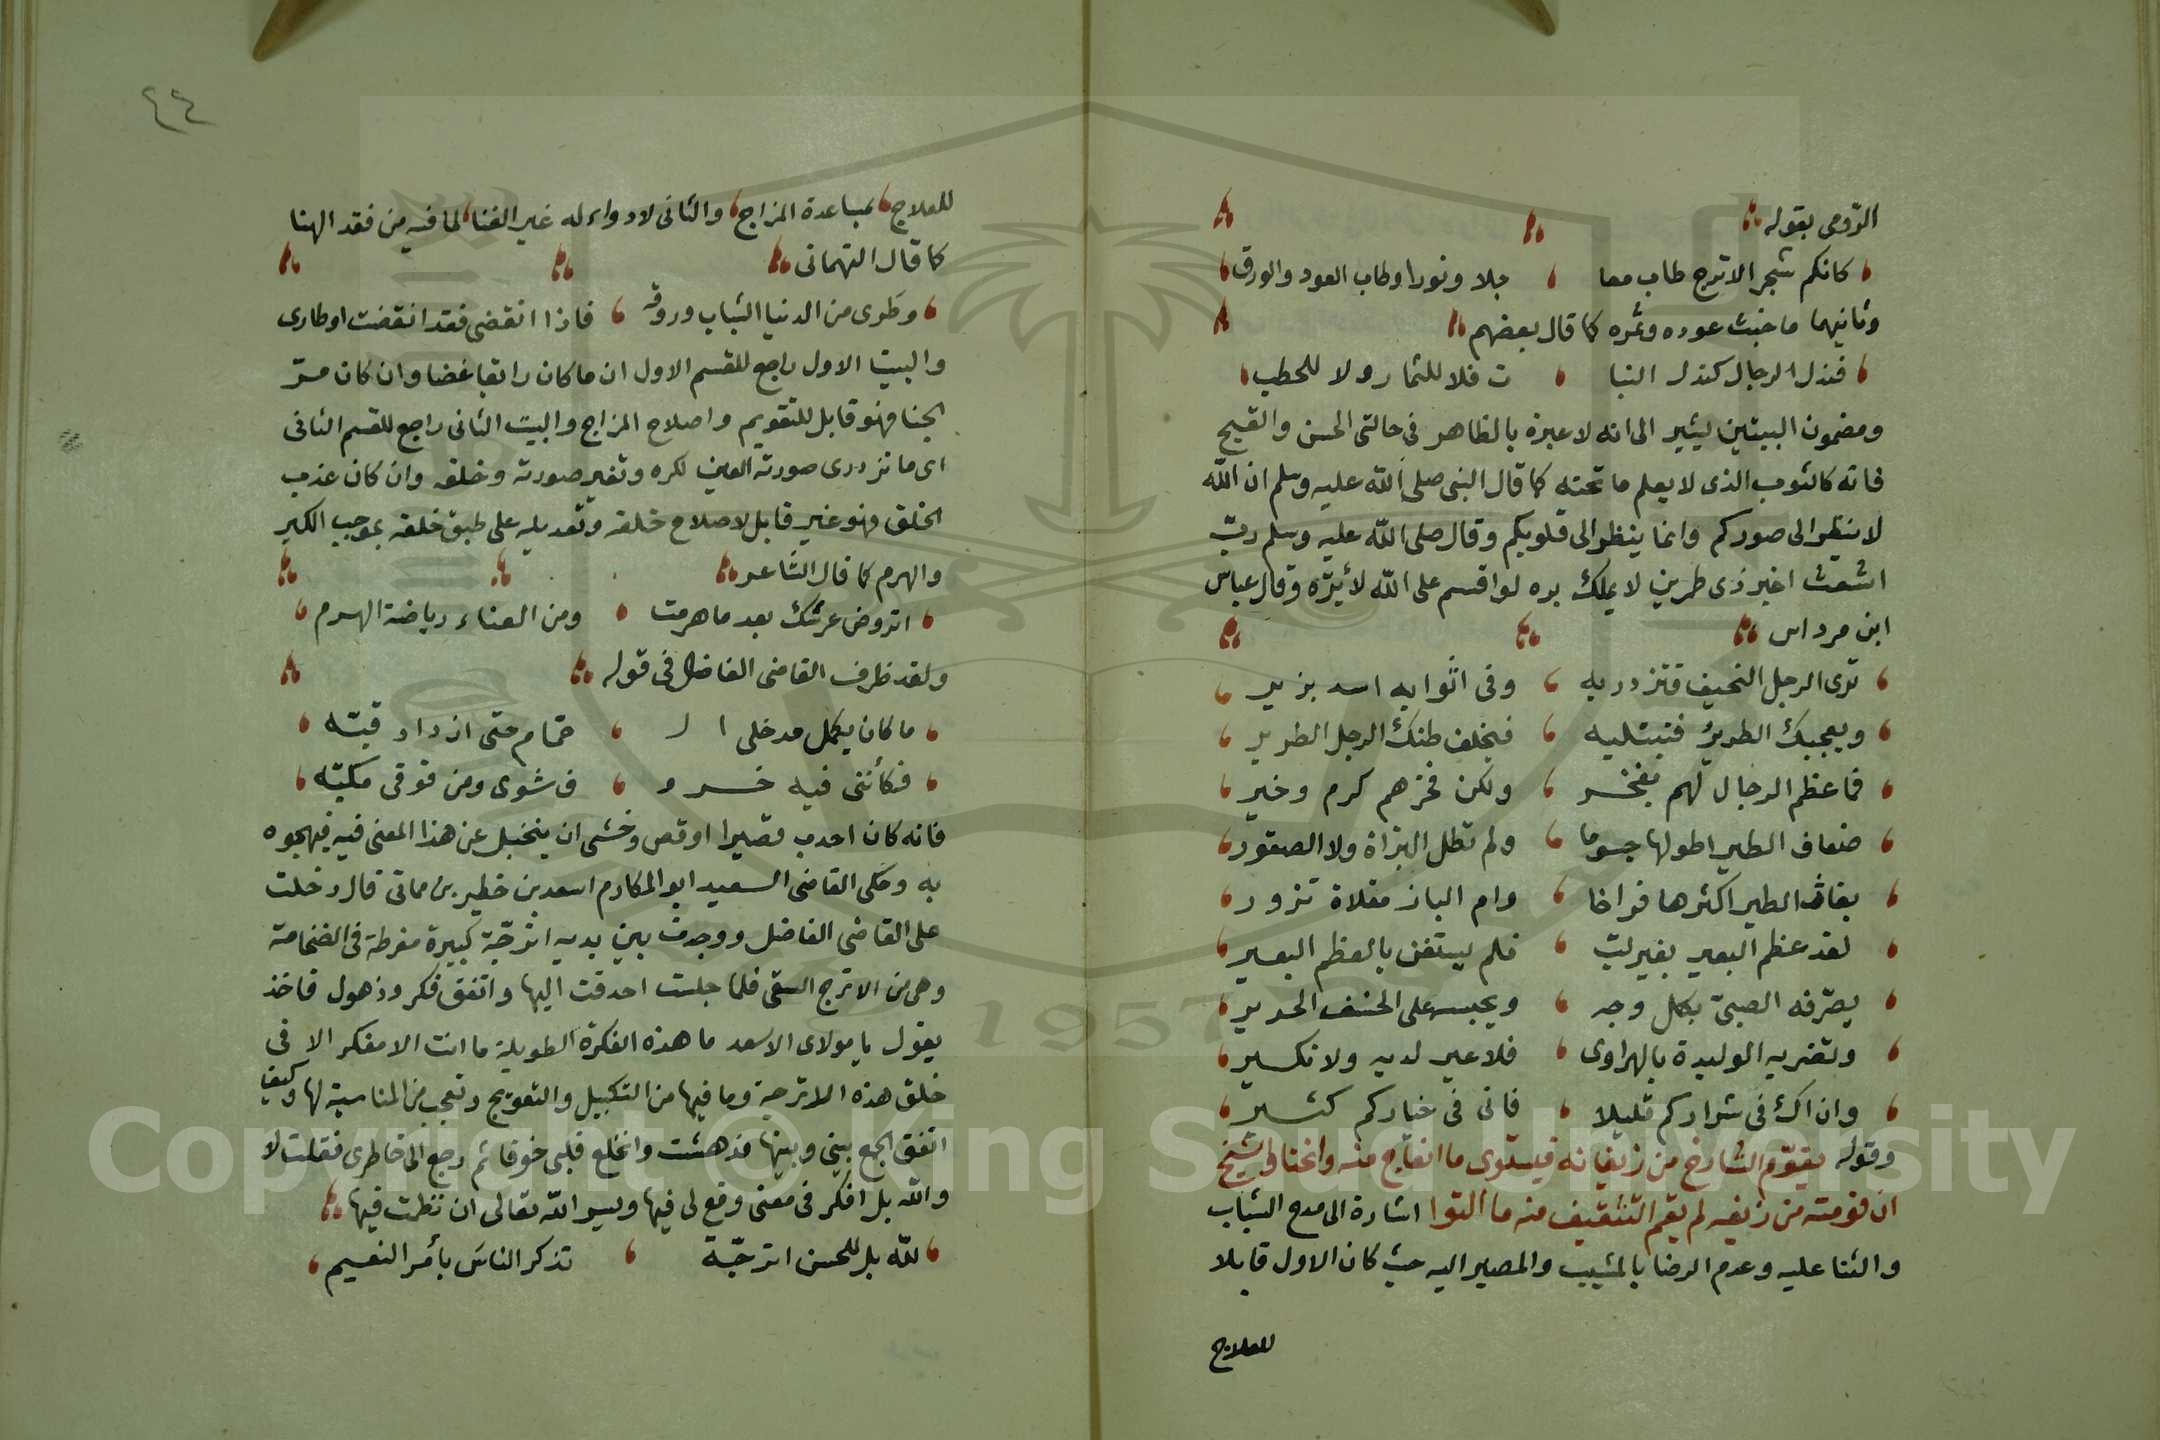 الرومى بقوله
كانكم شجر الاترج طاب معا حملا ونورا وطاب العود والورق
وثانيهما ما خبث عوده وثمره كما قال بعضهم
فنذل الرجال كنذل النبا ت فلا للثمار ولا للحطب
ومضمون البيتين يشير الى انه لا عبرة بالظاهر فى حالتى الحسن والقبح
فانه كالثوب الذى لا يعلم ما تحته كما قال النبى صلى الله عليه وسلم ان الله
لا ينظر الى صوركم وانما ينظر الى قلوبكم وقال صلى الله عليه وسلم ربّ
اشعث اغبر ذى طمرين لا يملك بره لو اقسم على الله لأبرّه وقال عباس
ابن مرداس
ترى الرجل النحيف فتزدريه وفى اثوابه اسد يزير
ويعجبك الطرير فتبتليه فيخلف ظنك الرجل الطرير
فما عظم الرجال لهم بفخر ولكن فخرهم كرم وخير
ضعاف الطير اطولها جسوما ولم تطل البزاة ولا الصقور
بغاث الطير اكثرها فراخا وام الباز مقلاة نزور
لقد عظم البعير بغير لب فلم يستغن بالعظم البعير
يصرّفه الصبىّ بكل وجه ويحبسه على الخسف الجرير
وتضربه الوليدة بالهراوى فلا غير لديه ولا نكير
وان اك فى شراركم قليلا فانى فى خياركم كثير
وقوله يقوّم الشارخ من زيغانه فيستوى ما انعاج منه وانحنا والشيخ
ان قومته من زيغه لم يقم التثقيف منه ما التوا اشارة الى مدح الشباب
والثنا عليه وعدم الرضا بالمشيب والمصير اليه حيث كان الاول قابلا
للعلاج
٤٤
للعلاج بمساعدة المزاج والثانى لا دواء له غير الفنا لما فيه من فقد الهنا
كما قال التهامى
وطرى من الدنيا الشباب وروقه فاذا انقضى فقد انقضت اوطارى
والبيت الاول راجع للقسم الاول ان ما كان رائقا غضا وان كان مرّ
الجنا فهو قابل للتقويم واصلاح المزاج والبيت الثانى راجع للقسم الثانى
اى ما تزدرى صورته العين لكره وتغير صورته وخلقه وان كان عذب
الخلق فهو غير قابل لاصلاح خلقه وتعديله على طبق خلقه بموجب الكبر
والهرم كما قال الشاعر
اتروض عرسك بعد ما هرمت ومن العناء رياضة الهرم
ولقد ظرف القاضى الفاضل فى قوله
ما كان يكمل مدخلى ا ل حمّام حتى ازداد قبّه
فكأننى فيه خرو ف شوى ومن فوقى مكبّه
فانه كان احدب قصيرا اوقص وخشى ان يتخيل عن هذا المعنى فيه فيهجوه
به وحكى القاضى السعيد ابو المكارم اسعد بن خطير بن مماتى قال دخلت
على القاضى الفاضل ووجدت بين يديه اترجّة كبيرة مفرطة فى الضخامة
وهى من الاترج السقى فلما جلست احدقت اليها واتفق فكر وذهول فاخذ
يقول يا مولاى الاسعد ما هذه الفكرة الطويلة ما انت الا مفكر الا فى
خلق هذه الاترجة وما فيها من التكبيل والتعويج وتعجب من المناسبة لها وكيف
اتفق الجمع بينى وبينها فدهشت وانخلع قلبى خوفا ثم رجع الى خاطرى فقلت لا
والله بل افكر فى معنى وقع لى فيها ويسر الله تعالى ان نظمت فيها
لله بل للحسن اترجّة تذكر الناس بأمر النعيم